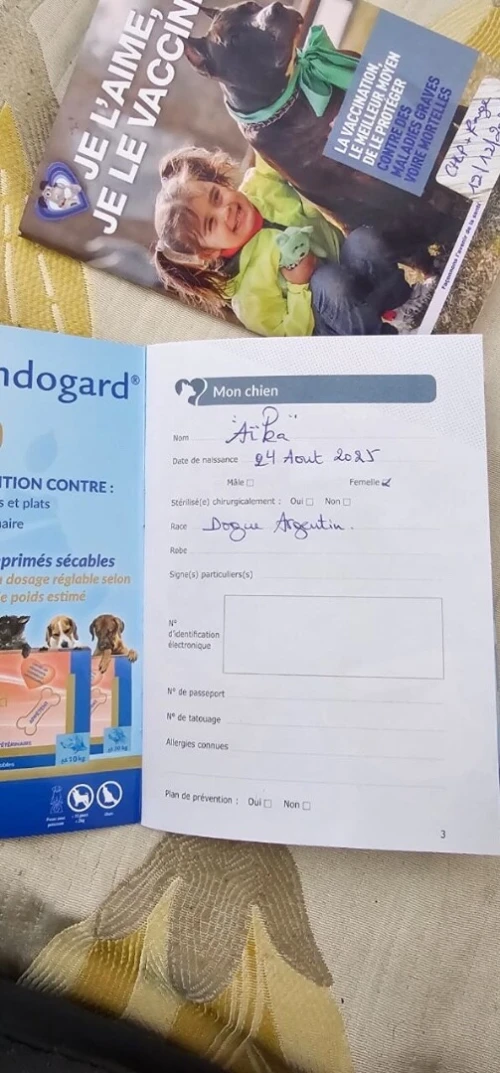 JE L'AIME,
JE LE VACCIN
LA VACCINATION,
LE MEILLEUR MOYEN
DE LE PROTÉGER
CONTRE DES
MALADIES GRAVES
VOIRE MORTELLES
12/12/20
ndogard®
TION CONTRE :
s et plats
naire
primés sécables
dosage réglable selon
e poids estimé
Mon chien
Nom "Aïka"
Date de naissance 24 Aout 2025
Mâle ☐ Femelle ☑
Stérilisé(e) chirurgicalement : Oui ☐ Non ☐
Race Dogue Argentin.
Robe
Signe(s) particuliers(s)
N°
d'identification
électronique
N° de passeport
N° de tatouage
Allergies connues
Plan de prévention : Oui ☐ Non ☐
3